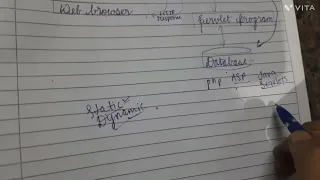 VITA
Web browser
HTTP
Response
Servlet program
Database
PHP ASP Java
Servlets
Static
Dynamic